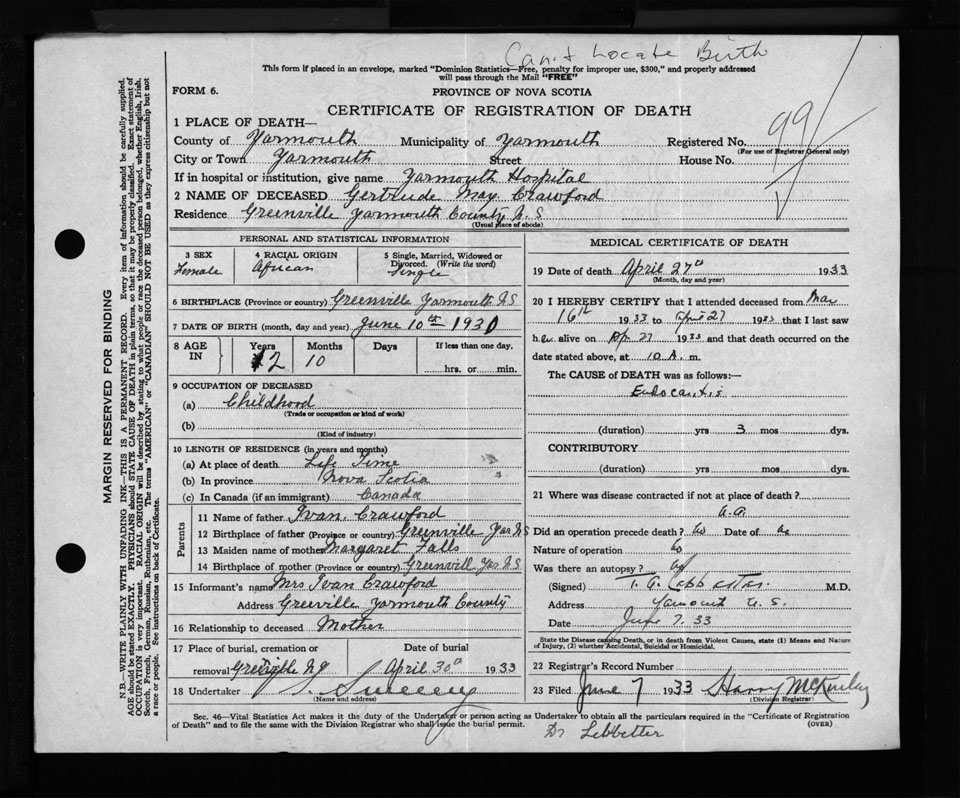 Can't Locate Birth
This form if placed in an envelope, marked "Dominion Statistics—Free, penalty for improper use, $300," and properly addressed
will pass through the Mail "FREE"
FORM 6.
PROVINCE OF NOVA SCOTIA
CERTIFICATE OF REGISTRATION OF DEATH
99
1 PLACE OF DEATH—
County of Yarmouth Municipality of Yarmouth Registered No.
(For use of Registrar General only)
City or Town Yarmouth Street House No.
If in hospital or institution, give name Yarmouth Hospital
2 NAME OF DECEASED Gertrude May Crawford
Residence Greenville Yarmouth County N.S
(Usual place of abode)
PERSONAL AND STATISTICAL INFORMATION
3 SEX Female
4 RACIAL ORIGIN African
5 Single, Married, Widowed or Divorced. (Write the word) Single
6 BIRTHPLACE (Province or country) Greenville Yarmouth N S
7 DATE OF BIRTH (month, day and year) June 10th 1931
8 AGE IN Years 2 Months 10 Days If less than one day, hrs. or min.
9 OCCUPATION OF DECEASED
(a) Childhood
(Trade or occupation or kind of work)
(b)
(Kind of industry)
10 LENGTH OF RESIDENCE (in years and months)
(a) At place of death Life Time
(b) In province Nova Scotia
(c) In Canada (if an immigrant) Canada
Parents
11 Name of father Ivan. Crawford
12 Birthplace of father (Province or country) Greenville Yar N S
13 Maiden name of mother Margaret Falls
14 Birthplace of mother (Province or country) Greenvill Yar. N S
15 Informant's name Mrs Ivan Crawford
Address Greenville Yarmouth County
16 Relationship to deceased Mother
17 Place of burial, cremation or removal Greenville N S Date of burial April 30th 1933
18 Undertaker Sweeny
(Name and address)
MEDICAL CERTIFICATE OF DEATH
19 Date of death April 27th 1933
(Month, day and year)
20 I HEREBY CERTIFY that I attended deceased from Mar
16th 1933 to April 27 1933 that I last saw
her alive on Apr. 27 1933 and that death occurred on the
date stated above, at 10 A. m.
The CAUSE of DEATH was as follows:—
(duration) yrs 3 mos dys.
CONTRIBUTORY
(duration) yrs. mos. dys.
21 Where was disease contracted if not at place of death?
Did an operation precede death? no Date of
Nature of operation
Was there an autopsy?
(Signed) M.D.
Address
Date June 7. 33
State the Disease causing Death, or in death from Violent Causes, state (1) Means and Nature
of Injury, (2) whether Accidental, Suicidal or Homicidal.
22 Registrar's Record Number
23 Filed June 7 1933 Harry McKinley
(Division Registrar)
Sec. 46—Vital Statistics Act makes it the duty of the Undertaker or person acting as Undertaker to obtain all the particulars required in the "Certificate of Registration
of Death" and to file the same with the Division Registrar who shall issue the burial permit. (OVER)
Dr Lebbetter
MARGIN RESERVED FOR BINDING
N.B.—WRITE PLAINLY WITH UNFADING INK—THIS IS A PERMANENT RECORD. Every item of information should be carefully supplied.
AGE should be stated EXACTLY. PHYSICIANS should STATE CAUSE OF DEATH in plain terms, so that it may be properly classified. Exact statement of
OCCUPATION is very important. RACIAL ORIGIN will be described by stating to what people or race the deceased person belonged, whether English, Irish,
Scotch, French, German, Russian, Ruthenian, etc. The terms "AMERICAN" or "CANADIAN" SHOULD NOT BE USED as they express citizenship but not
a race or people. See instructions on back of Certificate.